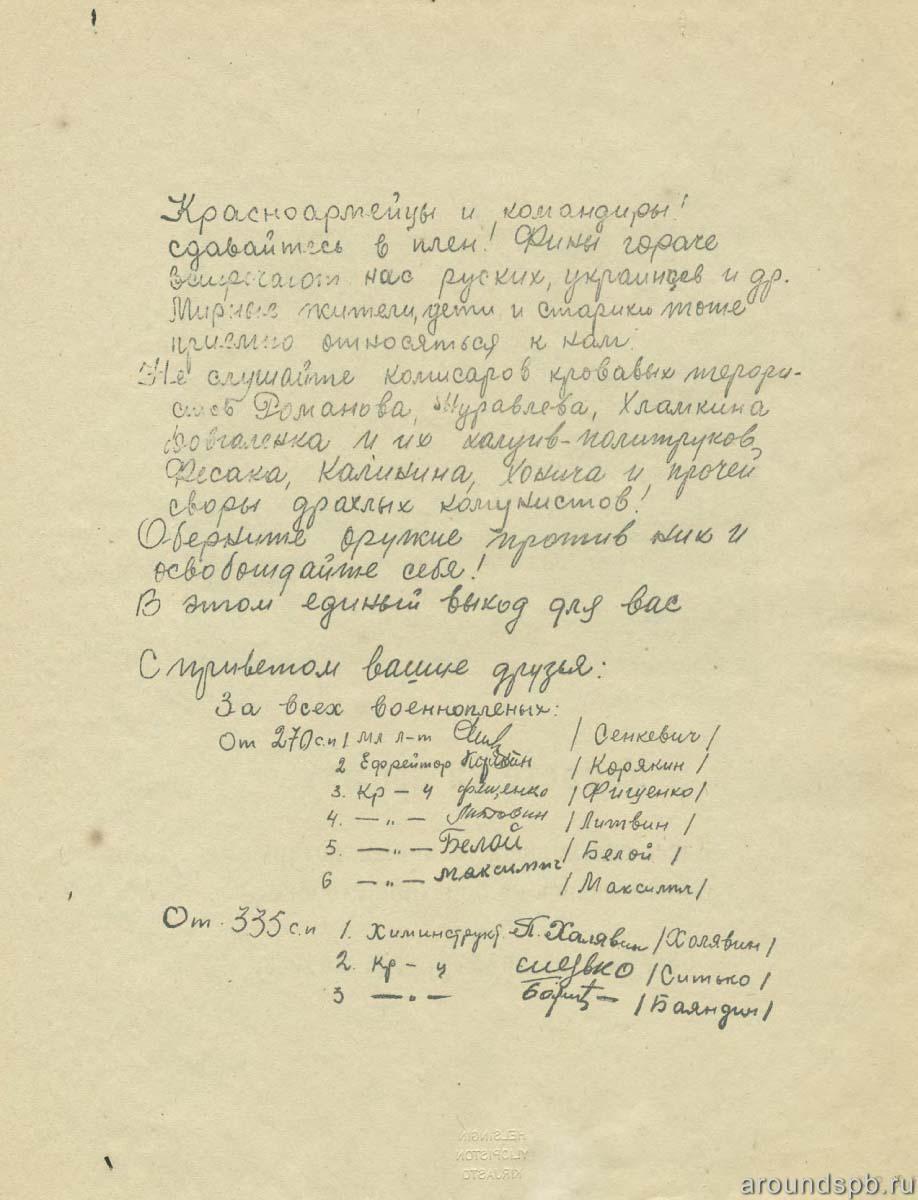 Красноармейцы и командиры!
сдавайтесь в плен! Фины гораче
встречают нас руских, украинцев и др.
Мирные жители, дети и старики тоже
приемно относяться к нам.
Не слушайте комисаров кровавых терори-
стов Романова, Журавлева, Хламкина
Довгаленка и их халуив-политруков,
Фесака, Калинина, Хонича и прочей
своры драхлых комунистов!
Оберните оружие против них и
освобождайте себя!
В этом единый выход для вас
С приветом ваши друзья:
За всех военнопленых:
От 270 с.п 1 Мл л-т /Сенкевич/
2 Ефрейтор Корякин /Корякин/
3. Кр-ц Фищенко /Фищенко/
4. —„— Литовин /Литвин/
5. —„— Белой /Белой/
6 —„— Максимич /Максимич/
От 335 с.п 1. Химинструкт П. Халявин /Холявин/
2. Кр-ц /Ситько/
3 —„— /Баяндин/
HELSINGIN
YLIOPISTON
KIRJASTO
aroundspb.ru